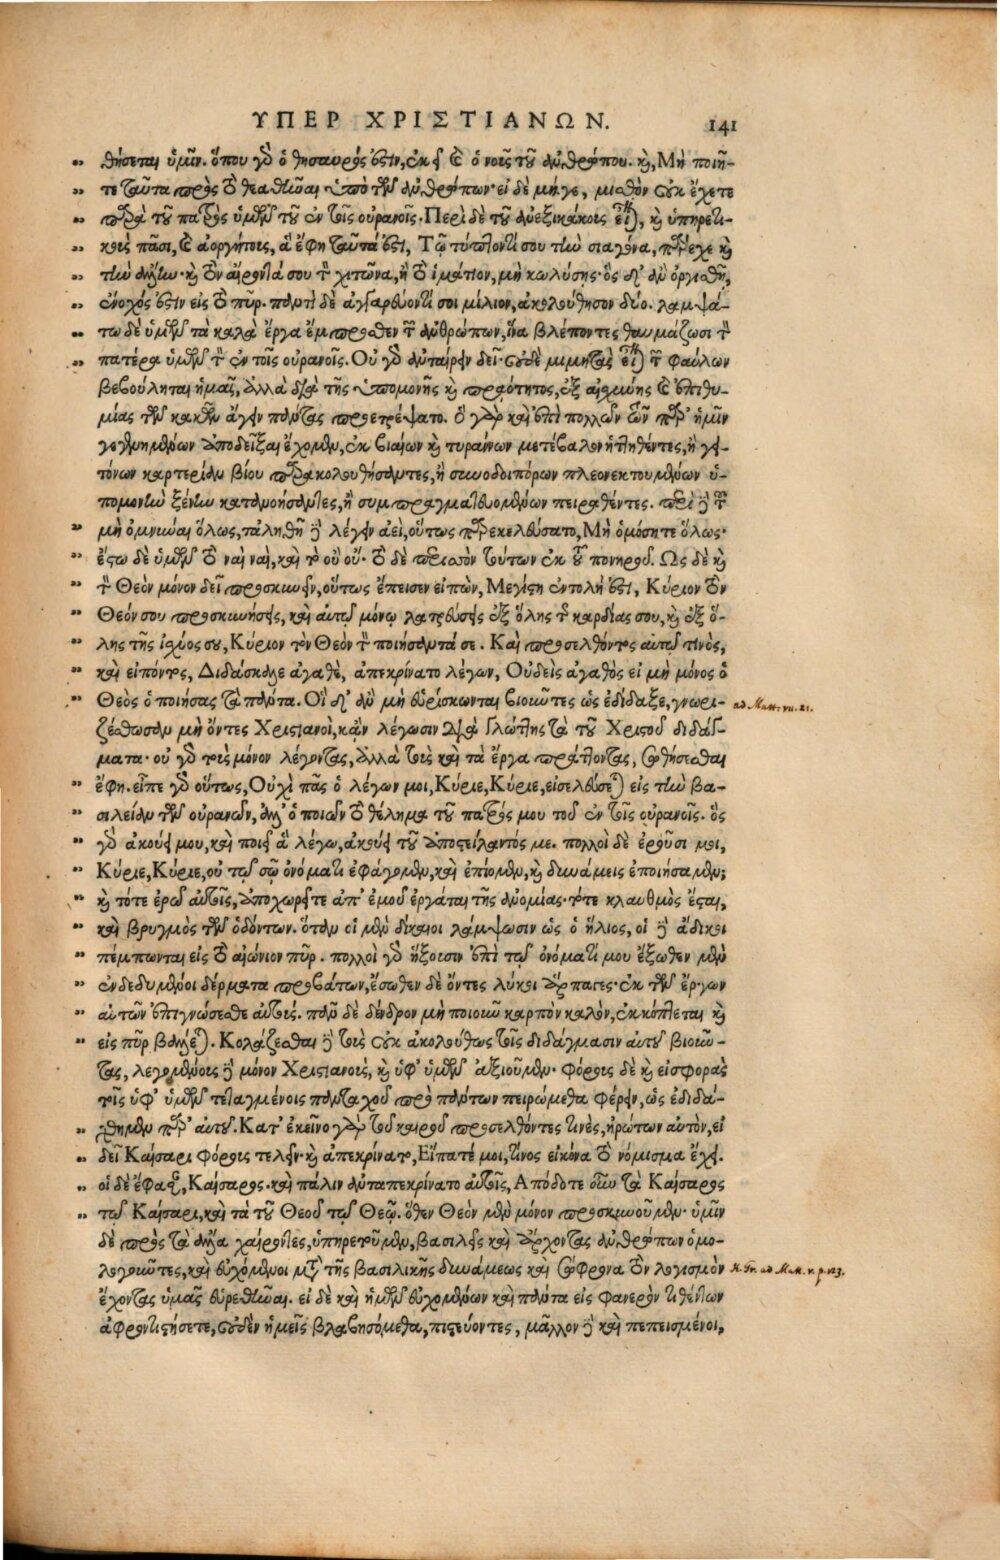 ΥΠΕΡ ΧΡΙΣΤΙΑΝΩΝ. 141
θήσεται ὑμῖν. ὅπου γὰρ ὁ θησαυρός ἐστιν, ἐκεῖ καὶ ὁ νοῦς τοῦ ἀνθρώπου. καὶ, Μὴ ποιῆ-
τε ταῦτα πρὸς τὸ θεαθῆναι ὑπὸ τῶν ἀνθρώπων· εἰ δὲ μή γε, μισθὸν οὐκ ἔχετε
παρὰ τοῦ πατρὸς ὑμῶν τοῦ ἐν τοῖς οὐρανοῖς. Περὶ δὲ τοῦ ἀνεξικάκοις εἶναι, καὶ ὑπηρετι-
κοῖς πᾶσι, καὶ ἀοργήτοις, ἃ ἔφη ταῦτά ἐστι, Τῷ τύπτοντί σου τὴν σιαγόνα, πάρεχε καὶ
τὴν ἄλλην· καὶ τὸν αἴροντά σου τὸν χιτῶνα, ἢ τὸ ἱμάτιον, μὴ κωλύσῃς· ὃς δ' ἂν ὀργισθῇ,
ἔνοχός ἐστιν εἰς τὸ πῦρ. παντὶ δὲ ἀγγαρεύοντί σοι μίλιον, ἀκολούθησον δύο. λαμψά-
τω δὲ ὑμῶν τὰ καλὰ ἔργα ἔμπροσθεν τῶν ἀνθρώπων, ἵνα βλέποντες θαυμάζωσι τὸν
πατέρα ὑμῶν τὸν ἐν τοῖς οὐρανοῖς. Οὐ γὰρ ἀνταίρειν δεῖ· οὐδὲ μιμητὰς εἶναι τῶν φαύλων
βεβούληται ἡμᾶς, ἀλλὰ διὰ τῆς ὑπομονῆς καὶ πραότητος, ἐξ αἰσχύνης καὶ ἐπιθυ-
μίας τῶν κακῶν ἄγειν πάντας προετρέψατο. ὃ γὰρ καὶ ἐπὶ πολλῶν τῶν παρ' ἡμῖν
γεγενημένων ἀποδεῖξαι ἔχομεν, ἐκ βιαίων καὶ τυράννων μετέβαλον ἡττηθέντες, ἢ γει-
τόνων καρτερίαν βίου παρακολουθήσαντες, ἢ συνοδοιπόρων πλεονεκτουμένων ὑ-
πομονὴν ξένην κατανοήσαντες, ἢ συμπραγματευομένων πειραθέντες. περὶ δὲ τοῦ
μὴ ὀμνύναι ὅλως, τἀληθῆ δὲ λέγειν ἀεὶ, οὕτως παρεκελεύσατο, Μὴ ὀμόσητε ὅλως·
ἔστω δὲ ὑμῶν τὸ ναὶ ναὶ, καὶ τὸ οὒ οὔ· τὸ δὲ περισσὸν τούτων ἐκ τοῦ πονηροῦ. Ὡς δὲ καὶ
τὸν Θεὸν μόνον δεῖ προσκυνεῖν, οὕτως ἔπεισεν εἰπὼν, Μεγίστη ἐντολή ἐστι, Κύριον τὸν
Θεόν σου προσκυνήσεις, καὶ αὐτῷ μόνῳ λατρεύσεις ἐξ ὅλης τῆς καρδίας σου, καὶ ἐξ ὅ-
λης τῆς ἰσχύος σου, Κύριον τὸν Θεὸν τὸν ποιήσαντά σε. Καὶ προσελθόντος αὐτῷ τινὸς,
καὶ εἰπόντος, Διδάσκαλε ἀγαθὲ, ἀπεκρίνατο λέγων, Οὐδεὶς ἀγαθὸς εἰ μὴ μόνος ὁ
Θεὸς ὁ ποιήσας τὰ πάντα. Οἳ δ' ἂν μὴ εὑρίσκωνται βιοῦντες ὡς ἐδίδαξε, γνωρι- ad Matt. vii. 21.
ζέσθωσαν μὴ ὄντες Χριστιανοὶ, κἂν λέγωσιν διὰ γλώττης τὰ τοῦ Χριστοῦ διδάγ-
ματα· οὐ γὰρ τοὺς μόνον λέγοντας, ἀλλὰ τοὺς καὶ τὰ ἔργα πράττοντας, σωθήσεσθαι
ἔφη. εἶπε γὰρ οὕτως, Οὐχὶ πᾶς ὁ λέγων μοι, Κύριε, Κύριε, εἰσελεύσεται εἰς τὴν βα-
σιλείαν τῶν οὐρανῶν, ἀλλ' ὁ ποιῶν τὸ θέλημα τοῦ πατρός μου τοῦ ἐν τοῖς οὐρανοῖς. ὃς
γὰρ ἀκούει μου, καὶ ποιεῖ ἃ λέγω, ἀκούει τοῦ ἀποστείλαντός με. πολλοὶ δὲ ἐροῦσί μοι,
Κύριε, Κύριε, οὐ τῷ σῷ ὀνόματι ἐφάγομεν, καὶ ἐπίομεν, καὶ δυνάμεις ἐποιήσαμεν;
καὶ τότε ἐρῶ αὐτοῖς, ἀποχωρεῖτε ἀπ' ἐμοῦ ἐργάται τῆς ἀνομίας· τότε κλαυθμὸς ἔσται,
καὶ βρυγμὸς τῶν ὀδόντων. ὅταν οἱ μὲν δίκαιοι λάμψωσιν ὡς ὁ ἥλιος, οἱ δὲ ἄδικοι
πέμπωνται εἰς τὸ αἰώνιον πῦρ. πολλοὶ γὰρ ἥξουσιν ἐπὶ τῷ ὀνόματί μου ἔξωθεν μὲν
ἐνδεδυμένοι δέρματα προβάτων, ἔσωθεν δὲ ὄντες λύκοι ἅρπαγες· ἐκ τῶν ἔργων
αὐτῶν ἐπιγνώσεσθε αὐτούς. πᾶν δὲ δένδρον μὴ ποιοῦν καρπὸν καλὸν, ἐκκόπτεται καὶ
εἰς πῦρ βάλλεται. Κολάζεσθαι δὲ τοὺς οὐκ ἀκολούθως τοῖς διδάγμασιν αὐτοῦ βιοῦν-
τας, λεγομένους δὲ μόνον Χριστιανοὺς, καὶ ὑφ' ὑμῶν ἀξιοῦμεν. Φόρους δὲ καὶ εἰσφορὰς
τοῖς ὑφ' ὑμῶν τεταγμένοις πανταχοῦ πρὸ πάντων πειρώμεθα φέρειν, ὡς ἐδιδά-
χθημεν παρ' αὐτοῦ. Κατ' ἐκεῖνο γὰρ τοῦ καιροῦ προσελθόντες τινὲς, ἠρώτων αὐτὸν, εἰ
δεῖ Καίσαρι φόρους τελεῖν· καὶ ἀπεκρίνατο, Εἴπατέ μοι, τίνος εἰκόνα τὸ νόμισμα ἔχει.
οἱ δὲ ἔφασαν, Καίσαρος. καὶ πάλιν ἀνταπεκρίνατο αὐτοῖς, Ἀπόδοτε οὖν τὰ Καίσαρος
τῷ Καίσαρι, καὶ τὰ τοῦ Θεοῦ τῷ Θεῷ. ὅθεν Θεὸν μὲν μόνον προσκυνοῦμεν· ὑμῖν
δὲ πρὸς τὰ ἄλλα χαίροντες, ὑπηρετοῦμεν, βασιλεῖς καὶ ἄρχοντας ἀνθρώπων ὁμο-
λογοῦντες, καὶ εὐχόμενοι μετὰ τῆς βασιλικῆς δυνάμεως καὶ σώφρονα τὸν λογισμὸν
ἔχοντας ὑμᾶς εὑρεθῆναι. εἰ δὲ καὶ ἡμῶν εὐχομένων καὶ πάντα εἰς φανερὸν τιθέντων
ἀφροντιστήσετε, οὐδὲν ἡμεῖς βλαβησόμεθα, πιστεύοντες, μᾶλλον δὲ καὶ πεπεισμένοι,